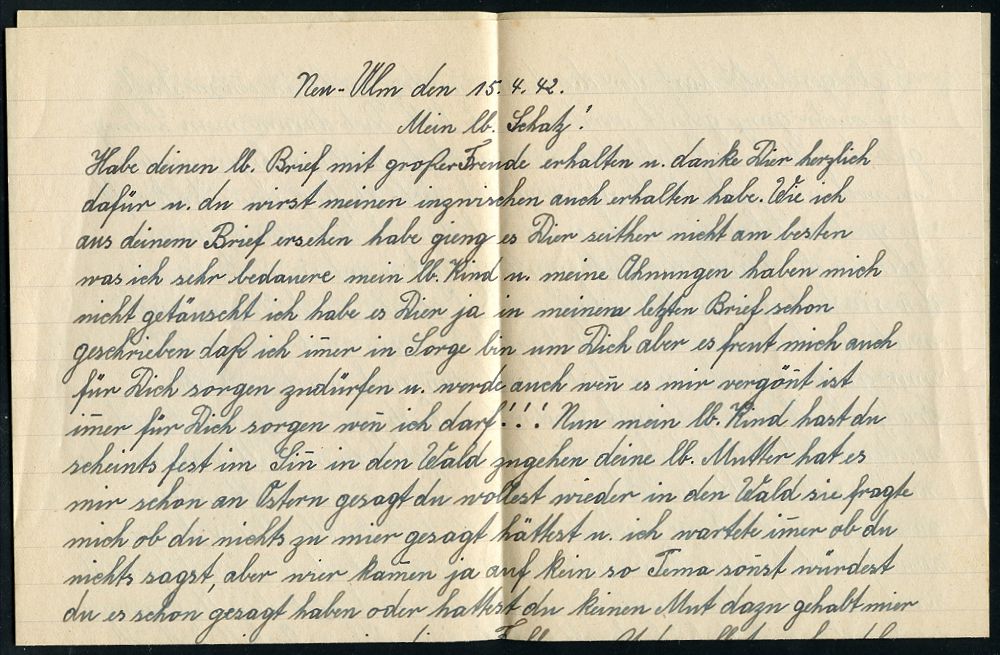 Neu-Ulm den 15.4.42.
Mein lb. Schatz!
Habe deinen lb. Brief mit großer Freude erhalten u. danke Dier herzlich
dafür u. du wirst meinen inzwischen auch erhalten habe. Wie ich
aus deinem Brief ersehen habe gieng es Dier seither nicht am besten
was ich sehr bedauere mein lb. Kind u. meine Ahnungen haben mich
nicht getäuscht ich habe es Dier ja in meinem letzten Brief schon
geschrieben daß ich im̄er in Sorge bin um Dich aber es freut mich auch
für Dich sorgen zudürfen u. werde auch wen̄ es mir vergön̄t ist
im̄er für Dich sorgen wen̄ ich darf!!! Nun mein lb. Kind hast du
scheints fest im Sin̄ in den Wald zugehen deine lb. Mutter hat es
mir schon an Ostern gesagt du wollest wieder in den Wald sie fragte
mich ob du nichts zu mier gesagt hättest u. ich wartete im̄er ob du
nichts sagst, aber wier kam̄en ja auf kein so Tema son̄st würdest
du es schon gesagt haben oder hattest du keinen Mut dazu gehabt mier